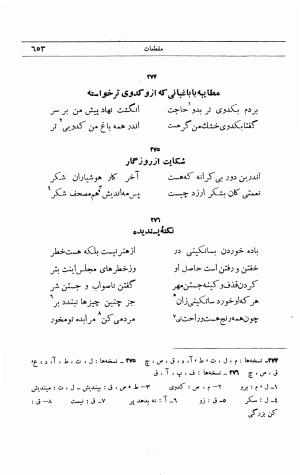 مقطعات ۶۵۳
۲۷۴
مطایبه با باغبانی که ازو کدوی تر خواسته
بردم بکدوی تر بدو حاجت انگشت نهاد پیش من بر سر
گفتا بکدوی خشك من گر هست اندر همه باغ من کدویی تر
۲۷۵
شکایت از روزگار
اندرین دور بی کرانه که هست آخر کار هوشیاران شکر
نعمتی کان بشکر ارزد چیست پس مه اندیش هم مصحف شکر
۲۷۶
نکتهٔ پسندیده
باده خوردن بساتگینی در از هنر نیست بلکه هست خطر
خفتن و رفتن است حاصل او وز خطرهای مجلس اینت بتر
کردن قذف و کینه جستن مهر گفتن ناصواب و جستن شر
هر که او خورد ساتگینی زان جز چنین چیزها نبندد بر
چون همه رنج هست و راحت نی مردمی کن مرا بده تو مخور
۲۷۴ ـ نسخه‌ها: م، ل، ت، ط، آ، د، ق، ص، چ ۲۷۵ ـ نسخه‌ها: ل، ت، ط، آ، د، ع،
ق، ص، چ ۲۷۶ ـ نسخه‌ها: ف، پ، آ، ق
۱ـ ل، م: برو ۲ـ م، ص: کدوی ۳ـ ط، ص، ق: بیندیش ـ ل، ت: میندیش
۴ـ ل: سکر ۵ـ ق: زو ۶ـ آ: نه بدهد پر ۷ـ ق: نیست ۸ـ ق:
کن بزرگی